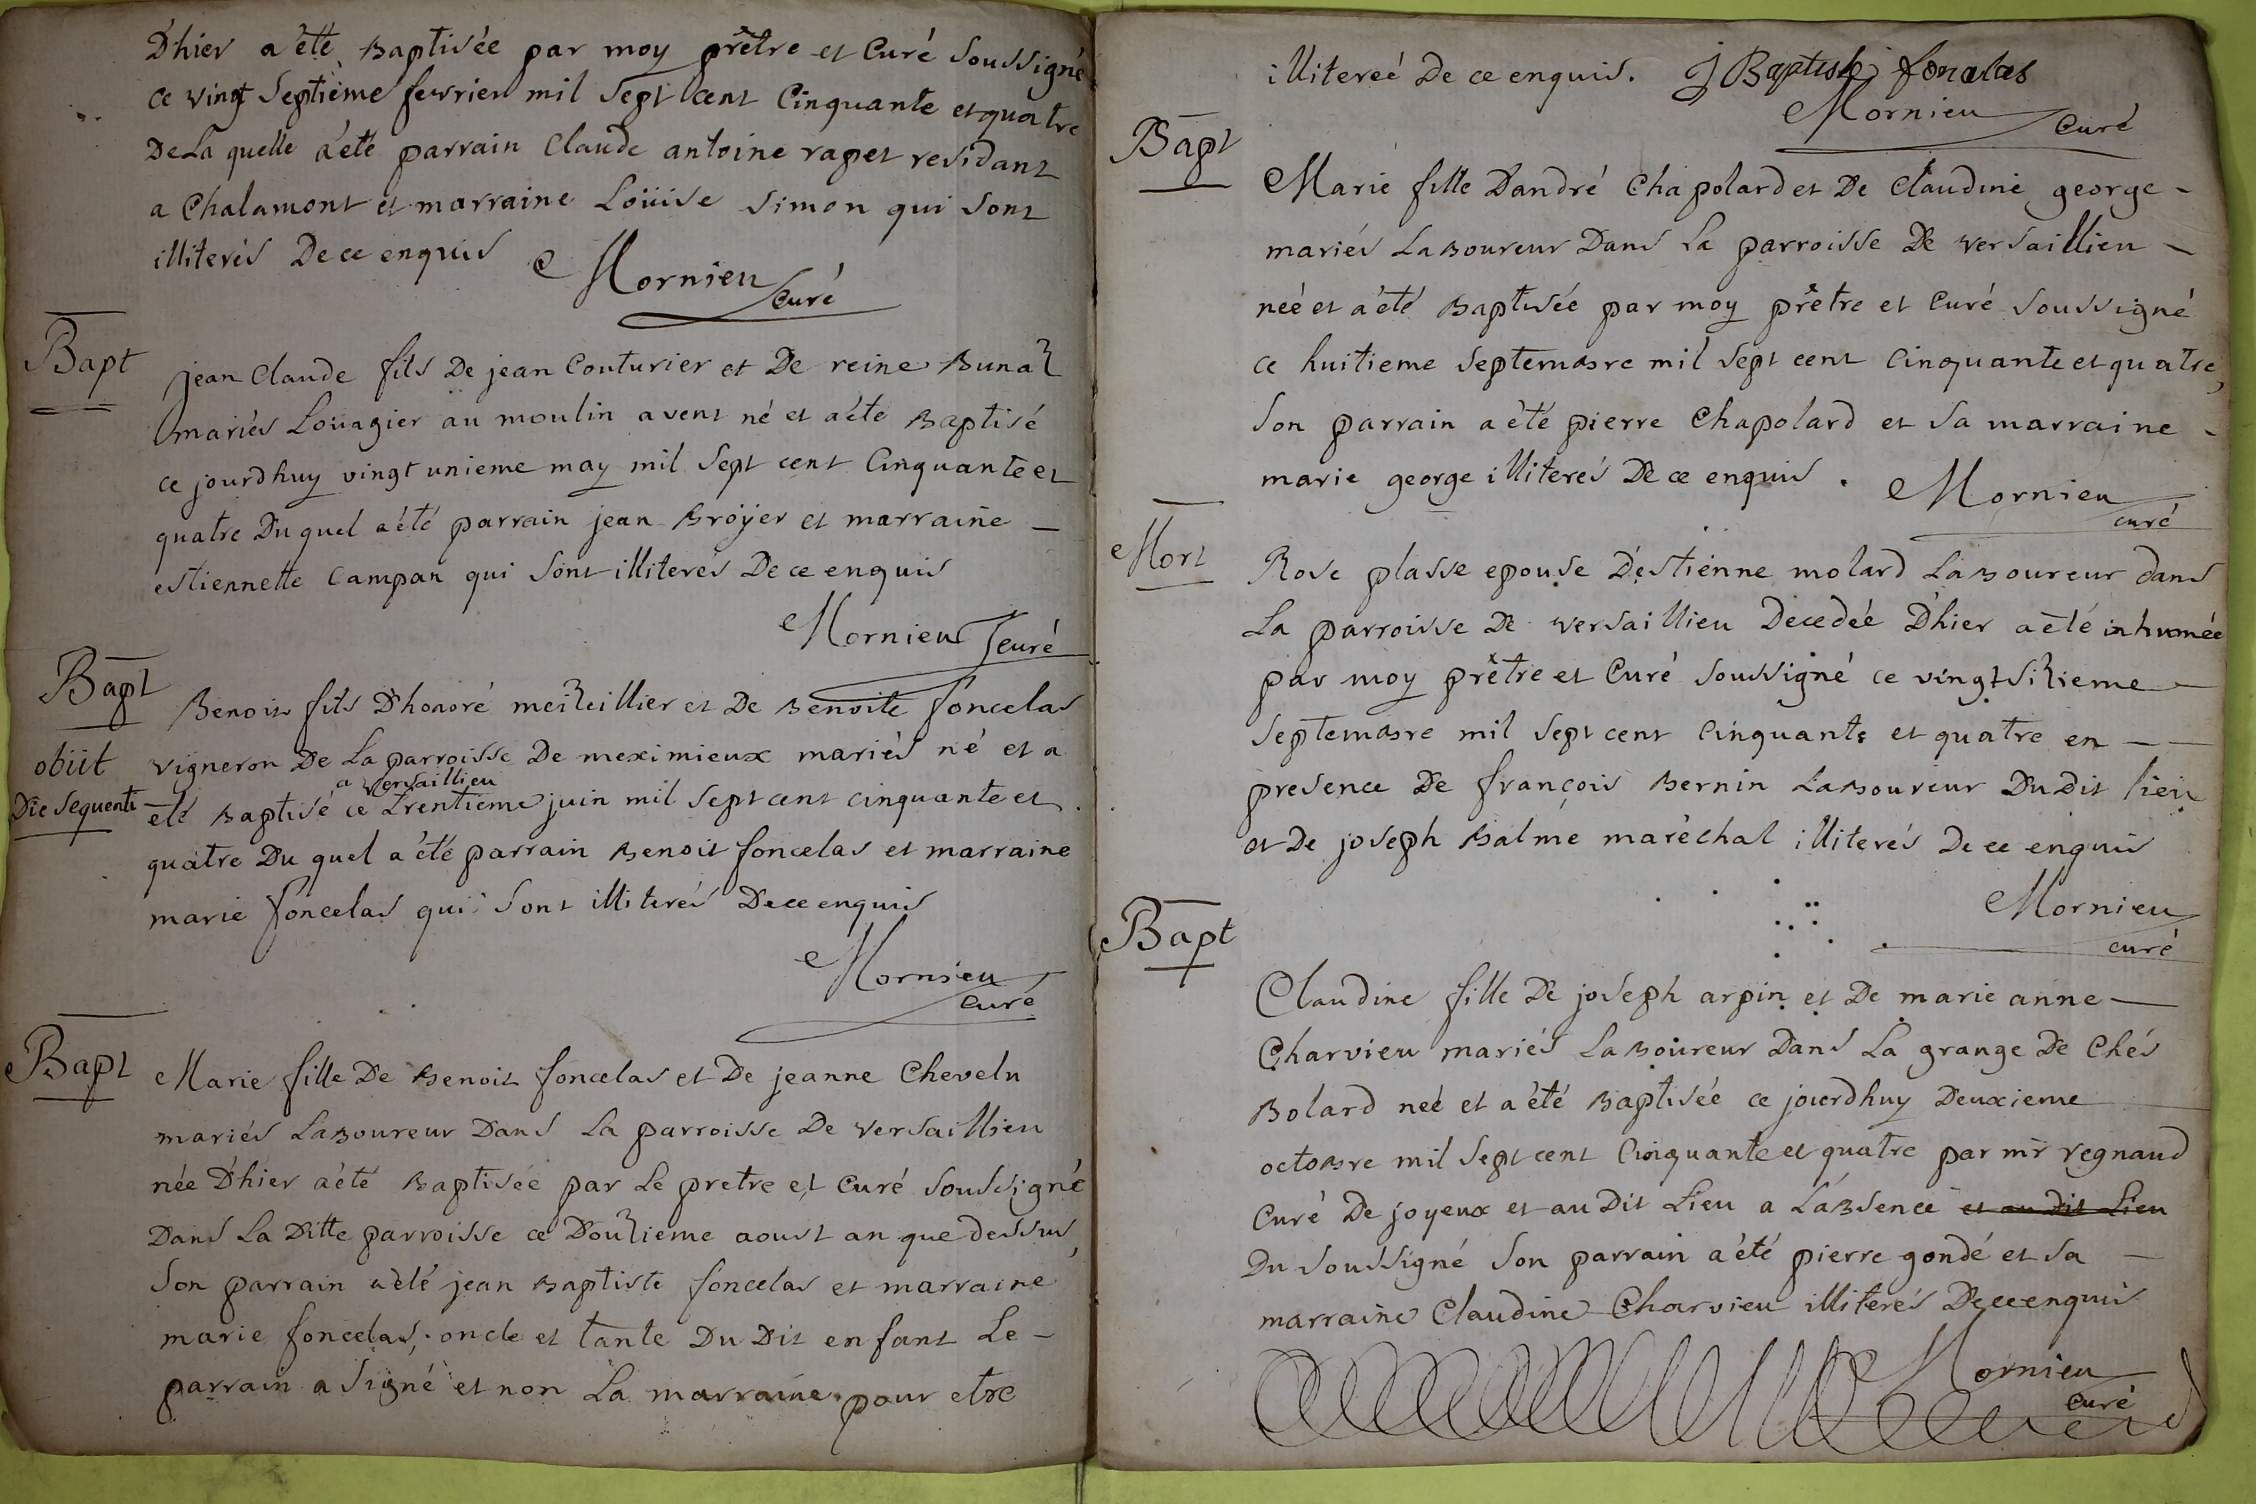 D'hier a été Baptisée par moy prêtre et Curé soussigné
ce vingt septième fevrier mil sept cent Cinquante et quatre
De La quelle a été parrain Claude antoine rapet residant
a Chalamont et marraine Loüise Simon qui sont
illiterés De ce enquis Mornieu
Curé
Bapt
jean Claude fils De jean Couturier et De reine Bunaz
mariés Loüagier au moulin a vent né et a été Baptisé
ce jourdhuy vingt unieme may mil sept cent Cinquante et
quatre Du quel a été parrain jean Broÿer et marraine —
estiennette Campan qui sont illiterés De ce enquis
Mornieu Curé
Bapt
Benoit fils D'honoré meizeillier et De Benoite foncelas
obiit
vigneron De La parroisse De meximieux mariés né et a
a versaillieu
Die sequenti
été Baptisé ce trentieme juin mil sept cent cinquante et
quatre Du quel a été parrain Benoit foncelas et marraine
marie foncelas qui sont illiterés De ce enquis
Mornieu
Curé
Bapt
Marie fille De Benoit foncelas et De jeanne Chevelu
mariés Laboureur Dans La parroisse De versaillieu
née D'hier a été Baptisée par Le pretre et Curé soussigné
Dans La Ditte parroisse ce Douzieme aoust an que dessus,
son parrain a été jean Baptiste foncelas et marraine
marie foncelas, oncle et tante Du Dit enfant Le —
parrain a signé et non La marraine pour etre
illitereé De ce enquis. J Baptiste foncelas
Mornieu
Curé
Bapt
Marie fille D'andré Chapolard et De Claudine george —
mariés Laboureur Dans La parroisse De versaillieu —
neé et a été Baptisée par moy prêtre et Curé soussigné
ce huitieme septembre mil sept cent Cinquante et quatre,
son parrain a été pierre Chapolard et sa marraine —
marie george illiterés De ce enquis. Mornieu
curé
Mort
Rose plasse epouse D'estienne molard Laboureur dans
La parroisse De versaillieu Decedée D'hier a été inhumée
par moy prêtre et Curé soussigné ce vingt sizieme —
septembre mil sept cent Cinquante et quatre en — —
presence De françois Bernin Laboureur Du Dit lieu
et De joseph Balme maréchal illiterés De ce enquis
Mornieu
curé
Bapt
Claudine fille De joseph arpin et De marie anne —
Charvieu mariés Laboureur Dans La grange De Chés
Bolard neé et a été Baptisée ce jourdhuy Deuxieme
octobre mil sept cent Cinquante et quatre par mr regnaud
Curé De joyeux et au Dit Lieu a L'absence et au Dit Lieu
Du soussigné son parrain a été pierre gondé et sa —
marraine Claudine Charvieu illiterés De ce enquis
Mornieu
Curé